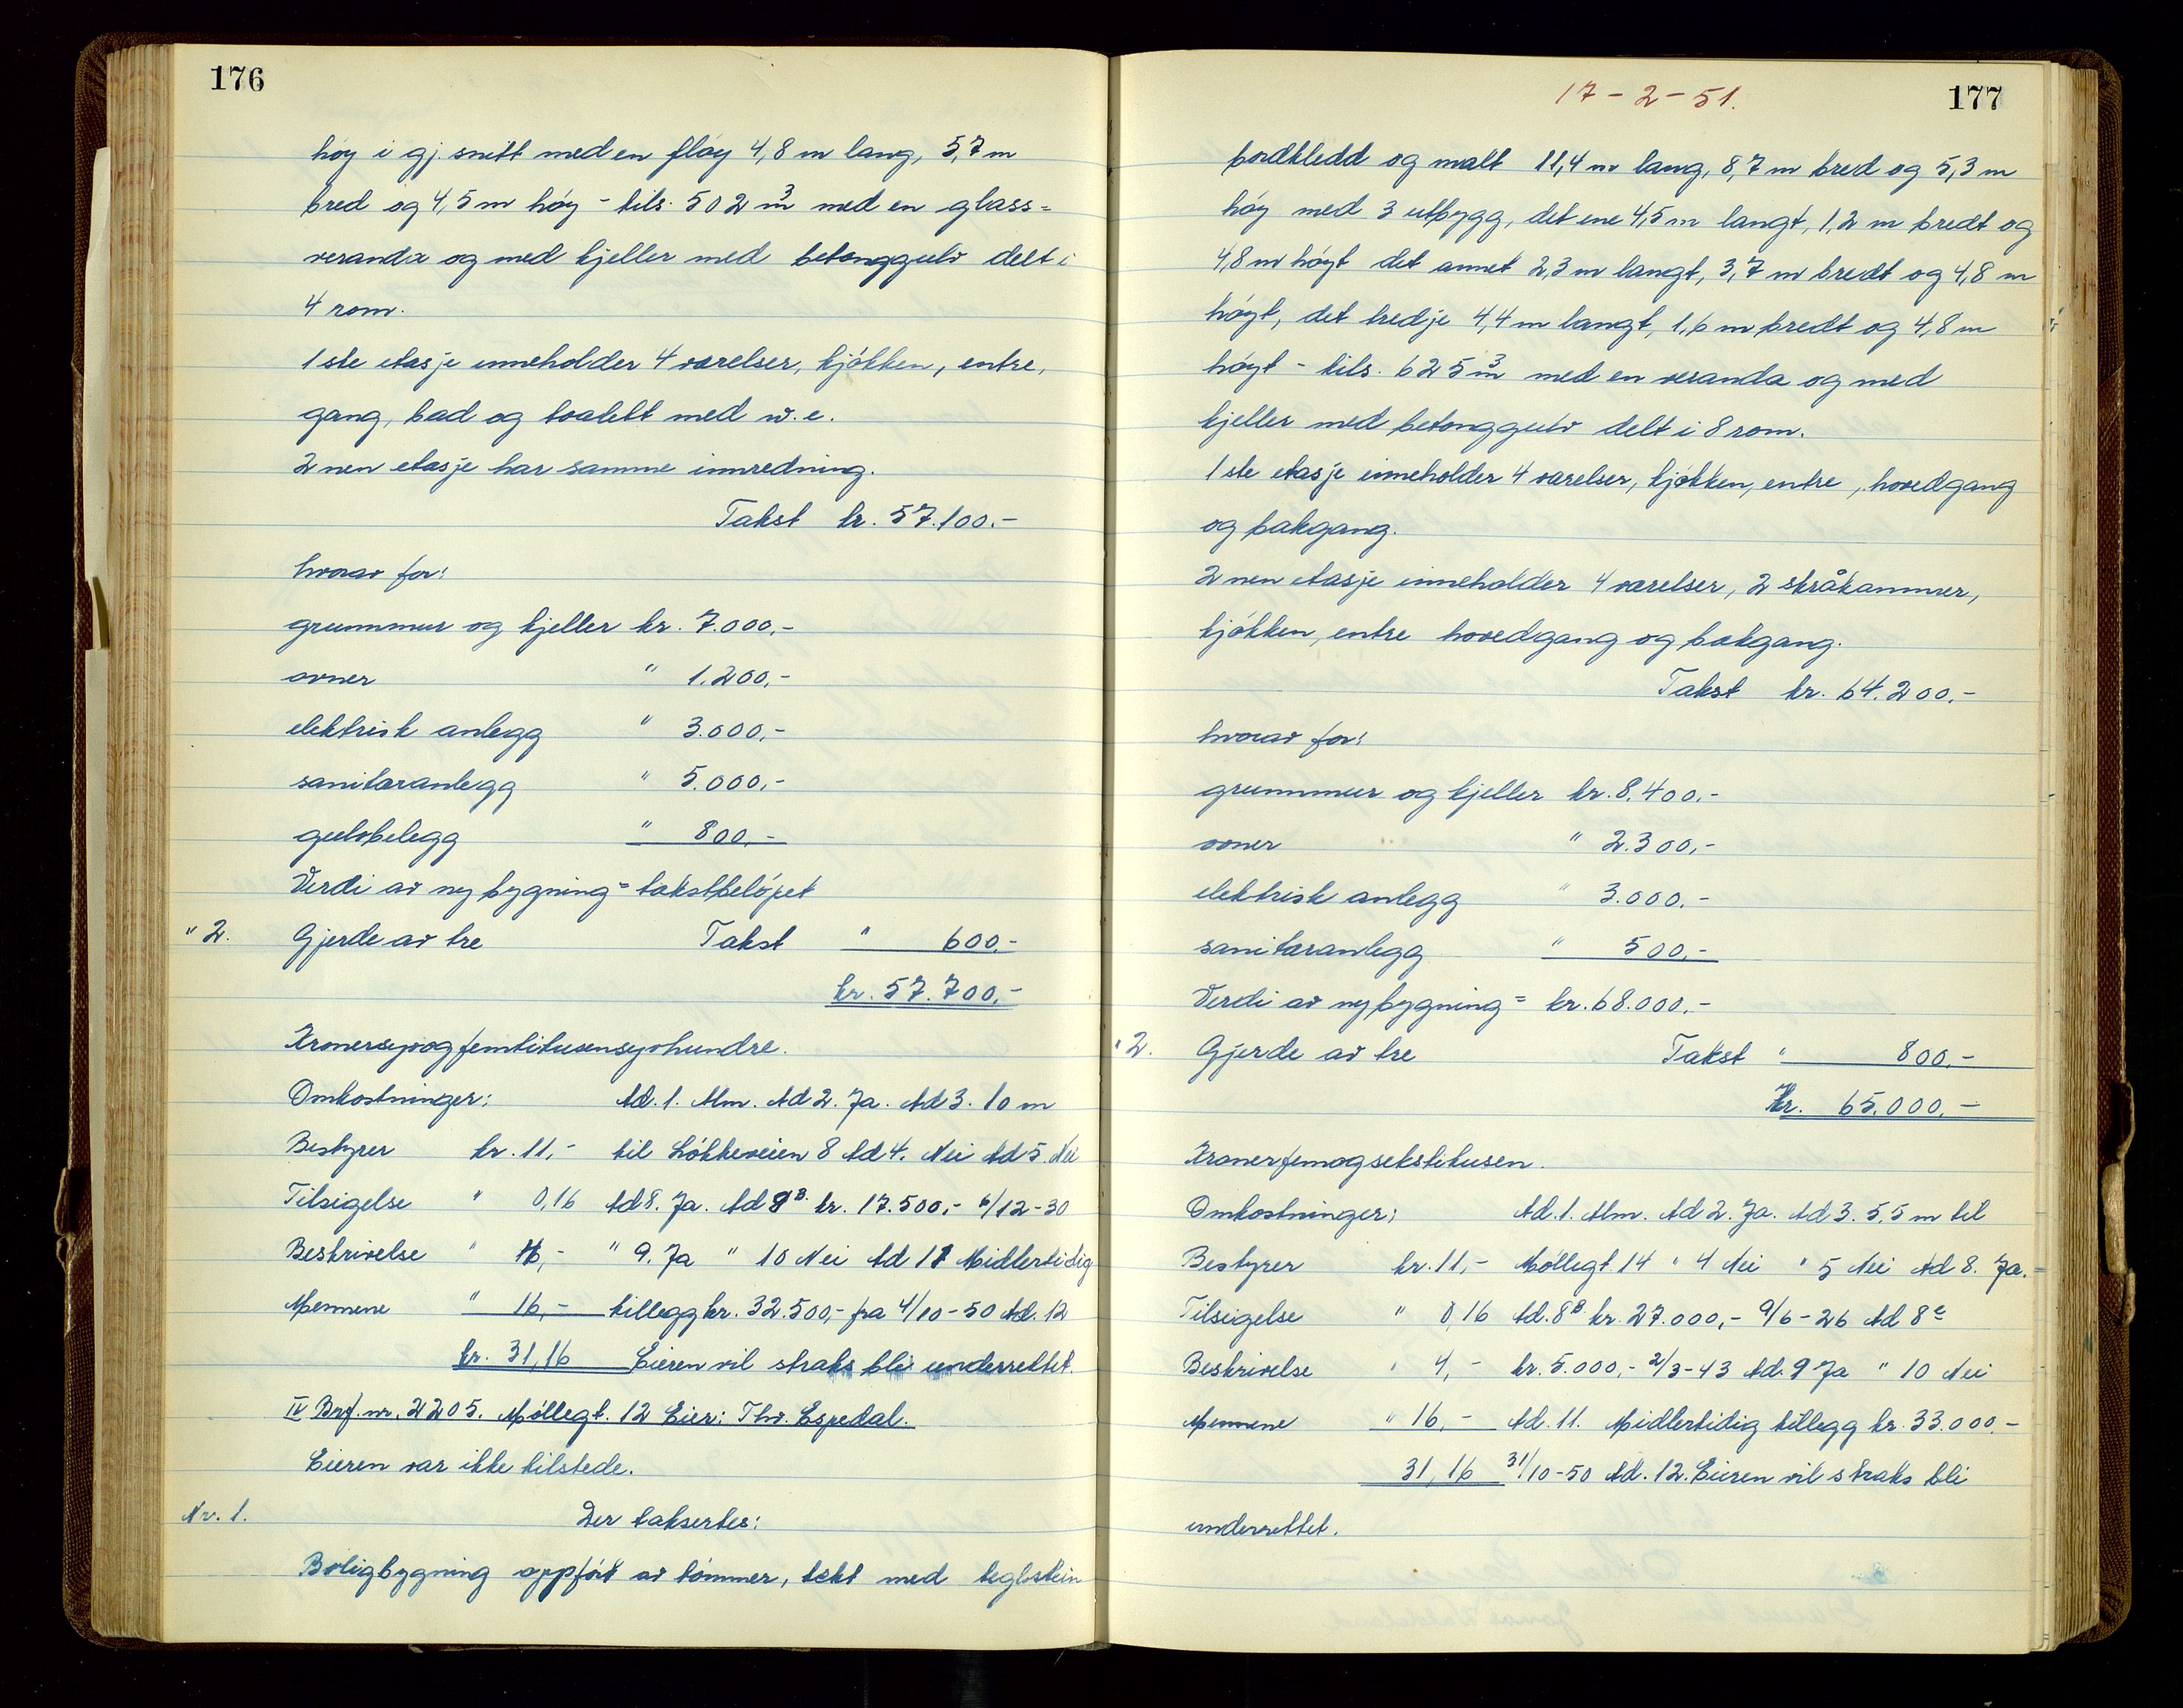 176
høy i gj. snitt med en fløy 4,8 m lang, 5,7 m
bred og 4,5 m høy - tils. 502 m³ med en glass=
veranda og med kjeller med betonggulv delt i
4 rom.
1ste etasje inneholder 4 værelser, kjøkken, entre,
gang, bad og toalett med w.c.
2nen etasje har samme innredning.
Takst kr. 57.100.-
hvorav for:
grunnmur og kjeller kr. 7.000,-
ovner " 1.200,-
elektrisk anlegg " 3.000,-
sanitæranlegg " 5.000,-
gulvbelegg " 800,-
Verdi av ny bygning = takstbeløpet
" 2. Gjerde av tre Takst " 600.-
kr. 57.700,-
Kronersyvogfemtitusensyvhundre.
Omkostninger: Ad. 1. Alm. Ad 2. Ja. Ad 3. 10 m
Bestyrer kr. 11,- til Løkkeveien 8 Ad 4. Nei Ad 5. Nei
Tilsigelse " 0,16 Ad 8. Ja. Ad 8 B. kr. 17.500,- 6/12-30
Beskrivelse " 4,- " 9. Ja " 10 Nei Ad 11 Midlertidig
Mennene " 16,- tillegg kr. 32.500,- fra 4/10-50 Ad. 12
kr. 31,16 Eieren vil straks bli underrettet.
IV Brf. nr. 2205. Møllegt. 12 Eier: Thv. Espedal.
Eieren var ikke tilstede.
Nr. 1. Der taksertes:
Boligbygning oppført av tømmer, tekt med teglstein
17-2-51.
177
bordkledd og malt 11,4 m lang, 8,7 m bred og 5,3 m
høy med 3 utbygg, det ene 4,5 m langt, 1,2 m bredt og
4,8 m høyt det annet 2,3 m langt, 3,7 m bredt og 4,8 m
høyt, det tredje 4,4 m langt, 1,6 m bredt og 4,8 m
høyt - tils. 625 m³ med en veranda og med
kjeller med betonggulv delt i 8 rom.
1ste etasje inneholder 4 værelser, kjøkken, entre, hovedgang
og bakgang.
2nen etasje inneholder 4 værelser, 2 skråkammer,
kjøkken, entre hovedgang og bakgang.
Takst kr. 64.200.-
hvorav for:
grunnmur og kjeller kr. 8.400.-
ovner " 2.300,-
elektrisk anlegg " 3.000.-
sanitæranlegg " 500,-
Verdi av ny bygning = kr. 68.000,-
" 2. Gjerde av tre Takst " 800,-
Kr. 65.000,-
Kronerfemogsekstitusen.
Omkostninger: Ad. 1. Alm. Ad 2. Ja. Ad 3. 5,5 m til
Bestyrer kr. 11,- Møllegt. 14 " 4 Nei " 5 Nei Ad 8. Ja.
Tilsigelse " 0,16 Ad. 8 B. kr. 27.000,- 9/6-26 Ad 8 c
Beskrivelse " 4,- kr. 5.000,- 2/3-43 Ad. 9 Ja " 10 Nei
Mennene " 16,- Ad. 11. Midlertidig tillegg kr. 33.000.-
31,16 31/10-50 Ad. 12. Eieren vil straks bli
underrettet.